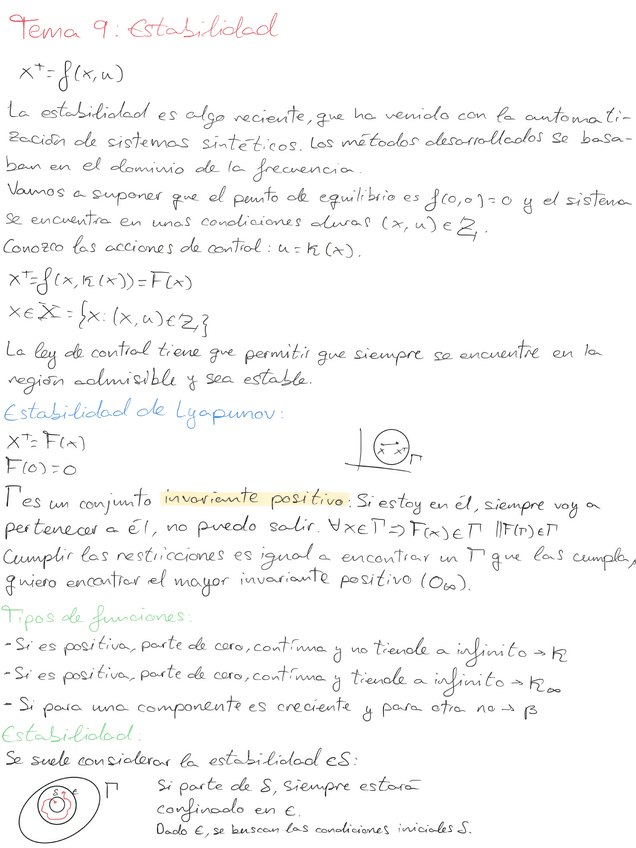 Tema 9: Estabilidad
x⁺=f(x,u)
La estabilidad es algo reciente, que ha venido con la automati-
zación de sistemas sintéticos. Los métodos desarrollados se basa-
ban en el dominio de la frecuencia.
Vamos a suponer que el punto de equilibrio es f(0,0)=0 y el sistema
se encuentra en unas condiciones duras (x,u)∈Z,
Conozco las acciones de control: u=K(x).
x⁺=f(x,K(x))=F(x)
x∈X={x:(x,u)∈Z}
La ley de control tiene que permitir que siempre se encuentre en la
región admisible y sea estable.
Estabilidad de Lyapunov:
x⁺=F(x)
F(0)=0
x x⁺ Γ
Γ es un conjunto invariante positivo: Si estoy en él, siempre voy a
pertenecer a él, no puedo salir. ∀x∈Γ⇒F(x)∈Γ ||F(Γ)∈Γ
Cumplir las restricciones es igual a encontrar un Γ que las cumpla,
quiero encontrar el mayor invariante positivo (O∞).
Tipos de funciones:
-Si es positiva, parte de cero, contínua y no tiende a infinito → K
-Si es positiva, parte de cero, contínua y tiende a infinito → K∞
- Si para una componente es creciente y para otra no → β
Estabilidad:
Se suele considerar la estabilidad εδ:
δ ε Γ
Si parte de δ, siempre estará
confinado en ε.
Dado ε, se buscan las condiciones iniciales δ.